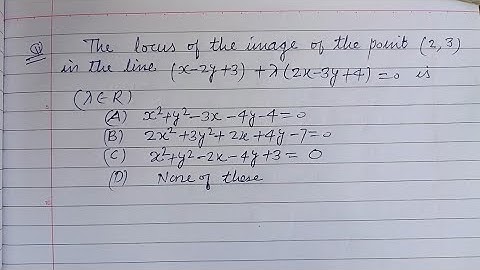 Q The locus of the image of the point (2,3)
in the line (x-2y+3) + λ(2x-3y+4) = 0 is
(λ∈R)
(A) x²+y²-3x-4y-4=0
(B) 2x²+3y²+2x+4y-7=0
(C) x²+y²-2x-4y+3 = 0
(D) None of these